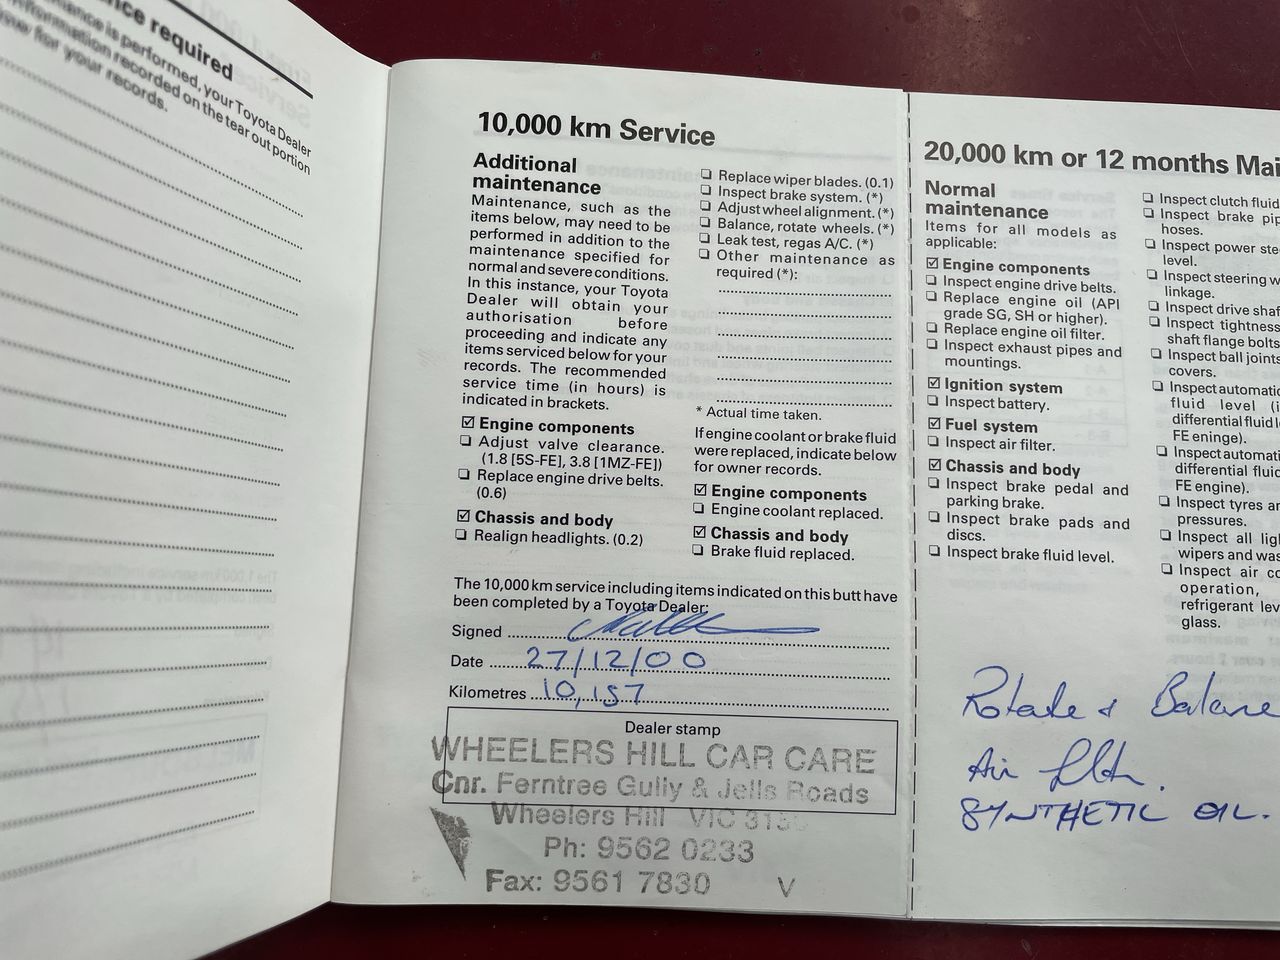 ce required
ance is performed, your Toyota Dealer
information recorded on the tear out portion
for your records.
10,000 km Service
Additional
maintenance
Maintenance, such as the
items below, may need to be
performed in addition to the
maintenance specified for
normal and severe conditions.
In this instance, your Toyota
Dealer will obtain your
authorisation before
proceeding and indicate any
items serviced below for your
records. The recommended
service time (in hours) is
indicated in brackets.
☑ Engine components
❏ Adjust valve clearance.
(1.8 [5S-FE], 3.8 [1MZ-FE])
❏ Replace engine drive belts.
(0.6)
☑ Chassis and body
❏ Realign headlights. (0.2)
❏ Replace wiper blades. (0.1)
❏ Inspect brake system. (*)
❏ Adjust wheel alignment. (*)
❏ Balance, rotate wheels. (*)
❏ Leak test, regas A/C. (*)
❏ Other maintenance as
required (*):
* Actual time taken.
If engine coolant or brake fluid
were replaced, indicate below
for owner records.
☑ Engine components
❏ Engine coolant replaced.
☑ Chassis and body
❏ Brake fluid replaced.
The 10,000 km service including items indicated on this butt have
been completed by a Toyota Dealer:
Signed
Date 27/12/00
Kilometres 10,157
Dealer stamp
WHEELERS HILL CAR CARE
Cnr. Ferntree Gully & Jells Roads
Wheelers Hill VIC 315
Ph: 9562 0233
Fax: 9561 7830 V
20,000 km or 12 months Mai
Normal
maintenance
Items for all models as
applicable:
☑ Engine components
❏ Inspect engine drive belts.
❏ Replace engine oil (API
grade SG, SH or higher).
❏ Replace engine oil filter.
❏ Inspect exhaust pipes and
mountings.
☑ Ignition system
❏ Inspect battery.
☑ Fuel system
❏ Inspect air filter.
☑ Chassis and body
❏ Inspect brake pedal and
parking brake.
❏ Inspect brake pads and
discs.
❏ Inspect brake fluid level.
❏ Inspect clutch fluid
❏ Inspect brake pip
hoses.
❏ Inspect power ste
level.
❏ Inspect steering w
linkage.
❏ Inspect drive shaf
❏ Inspect tightness
shaft flange bolts
❏ Inspect ball joints
covers.
❏ Inspect automat
fluid level (i
differential fluid l
FE eninge).
❏ Inspect automati
differential fluid
FE engine).
❏ Inspect tyres an
pressures.
❏ Inspect all ligh
wipers and was
❏ Inspect air co
operation,
refrigerant lev
glass.
Rotate & Balance
Air filter.
SYNTHETIC OIL.